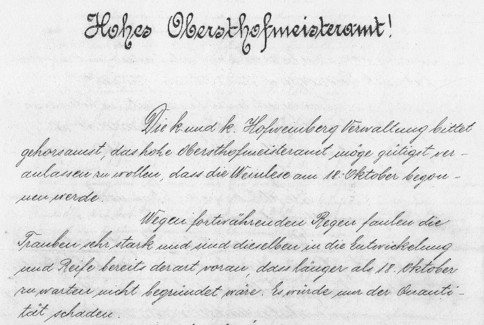 Hohes Obersthofmeisteramt!
Die k und k. Hofweinberg Verwaltung bittet
gehorsamst, das hohe Obersthofmeisteramt möge gütigst ver-
anlassen zu wollen, dass die Weinlese am 18. Oktober begon-
nen werde.
Wegen fortwährenden Regen faulen die
Trauben sehr stark und sind dieselben in die Entwickelung
und Reife bereits derart voran, dass länger als 18. Oktober
zu warten nicht begründet wäre. Es würde nur der Quanti-
tät schaden.